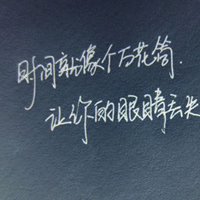 时间就像个万花筒.
让你的眼睛丢失